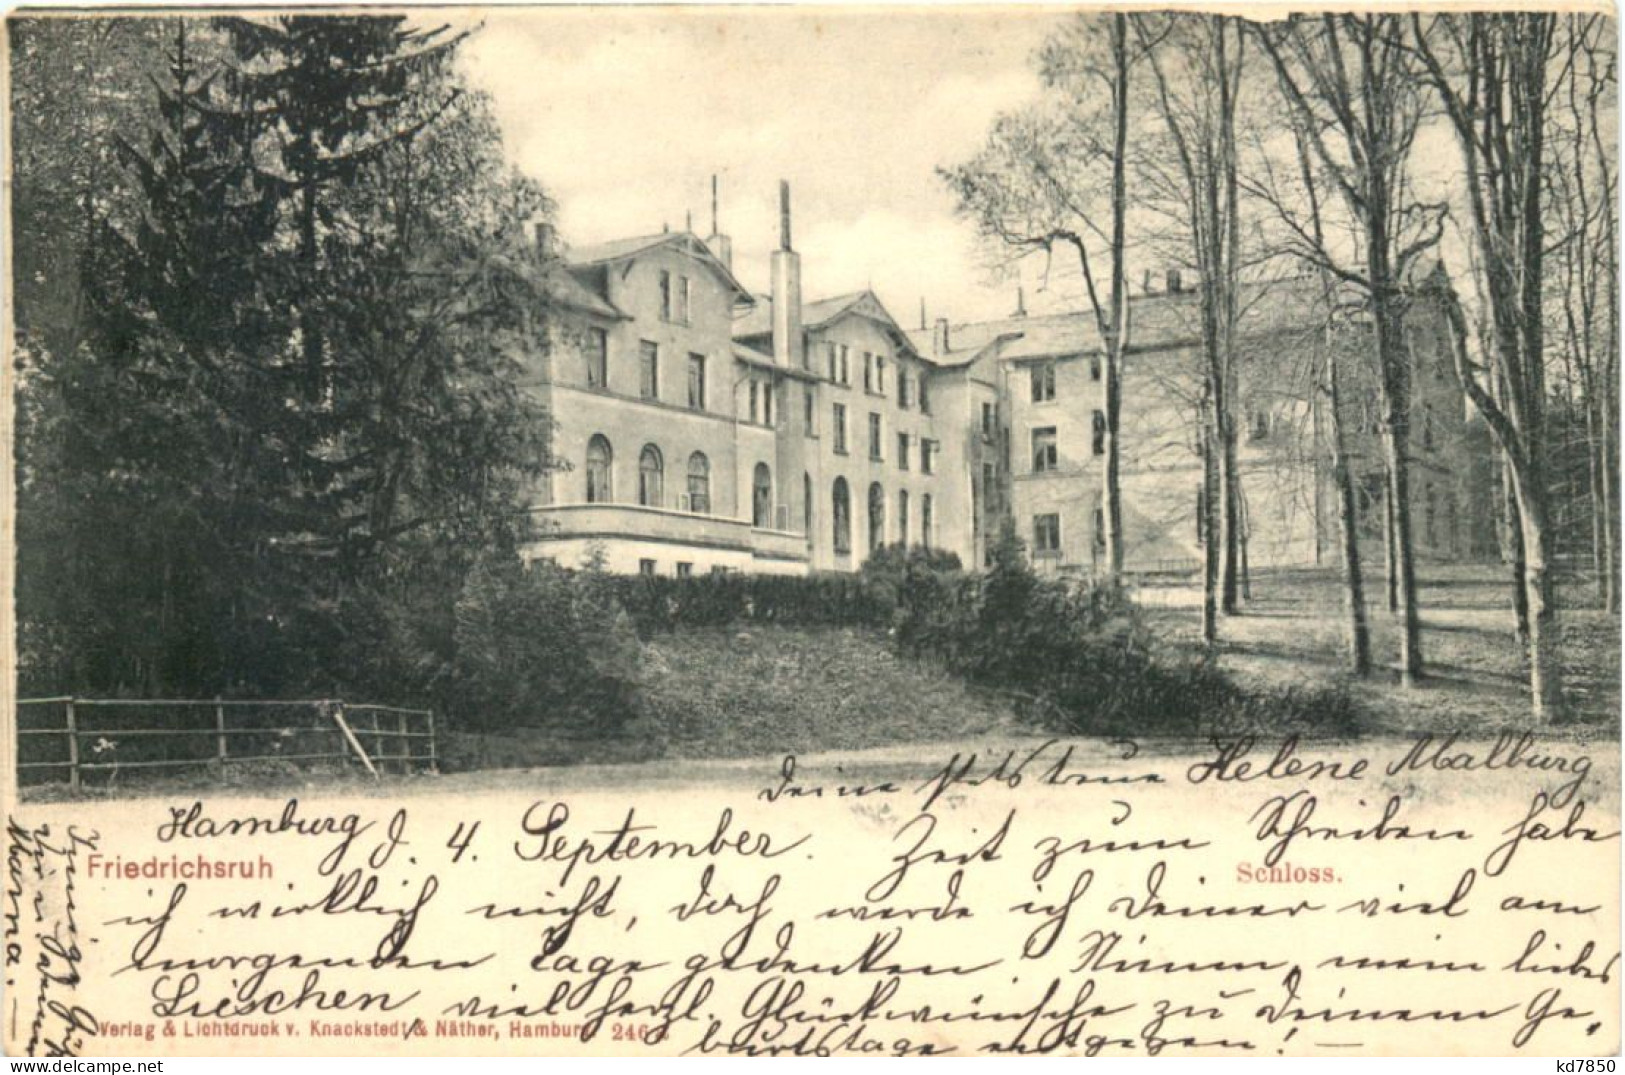 Hamburg d. 4. September. Zeit zum Schreiben habe
ich wirklich nicht, doch werde ich Deiner viel am
morgenden Tage gedenken. Nimm, mein liebes
Lieschen, viel herzl. Glückwünsche zu Deinem Ge-
burtstage entgegen! —
Deine stets treue Helene Malburg.
Innige Grüße
Mama. —
Friedrichsruh
Schloss.
Verlag & Lichtdruck v. Knackstedt & Näther, Hamburg 246
delcampe.net
kd7850